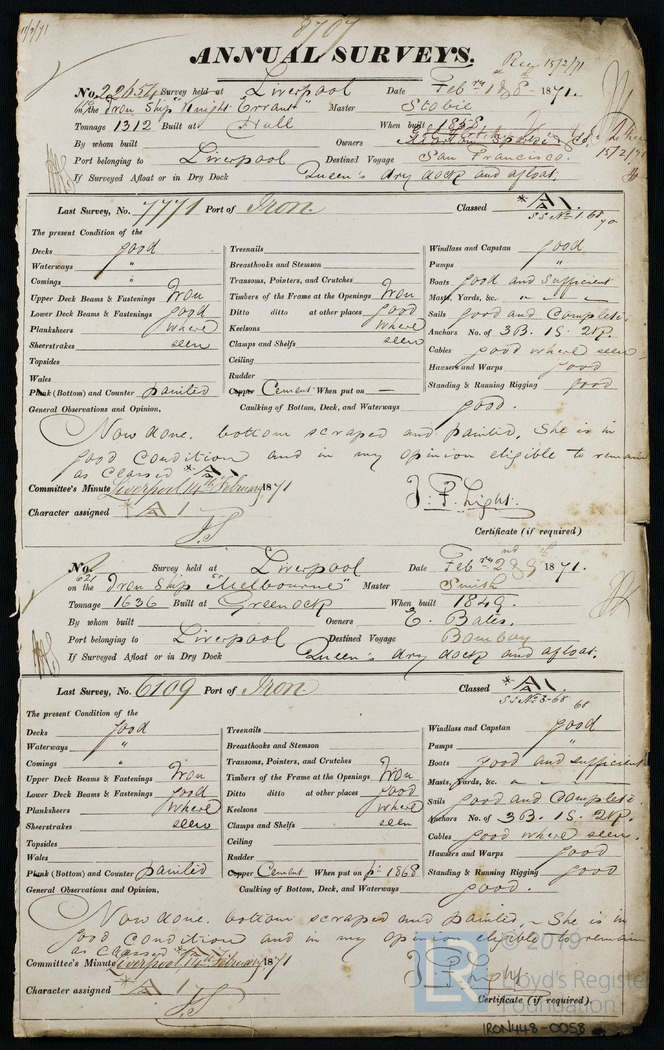 11/2/71
8707
ANNUAL SURVEYS.
Rec 15/2/71
No. 22654 Survey held at Liverpool Date Feb ry 1st & 8th 1871.
on the Iron Ship "Knight Errant" Master Stobie
Tonnage 1312 Built at Hull When built 1858
By whom built Owners & Co.
15/2/71
Port belonging to Liverpool Destined Voyage San Francisco.
If Surveyed Afloat or in Dry Dock Queen's dry dock and afloat.
Last Survey, No. 7771 Port of Iron. Classed * A 1.
SS No 1-68 70
The present Condition of the
Decks good
Waterways "
Comings "
Upper Deck Beams & Fastenings Iron
Lower Deck Beams & Fastenings good
Planksheers where
Sheerstrakes seen
Topsides
Wales
Plank (Bottom) and Counter painted
Treenails
Breasthooks and Stemson
Transoms, Pointers, and Crutches
Timbers of the Frame at the Openings Iron
Ditto ditto at other places good
Keelsons where
Clamps and Shelfs seen
Ceiling
Rudder
Copper Cement When put on —
Windlass and Capstan good
Pumps "
Boats good and sufficient
Masts, Yards, &c. " - " -
Sails good and Complete.
Anchors No. of 3B. 1S. 2K.
Cables good where seen
Hawsers and Warps good
Standing & Running Rigging good
General Observations and Opinion, Caulking of Bottom, Deck, and Waterways good.
Now done. bottom scraped and painted. She is in
good condition and in my opinion eligible to remain
as Classed * A 1
Committee's Minute Liverpool, 14th February 1871
J. P. Light.
Character assigned * A 1
JS
Certificate (if required)
No. Survey held at Liverpool Date Feb ry 2nd & 9th 1871.
621
on the Iron Ship "Melbourne" Master Smith
Tonnage 1636 Built at Greenock When built 1849.
By whom built Owners E. Bates.
Port belonging to Liverpool Destined Voyage Bombay
If Surveyed Afloat or in Dry Dock Queen's dry dock and afloat.
Last Survey, No. 6109 Port of Iron. Classed * A 1.
SS No 3-68 68
The present Condition of the
Decks good
Waterways "
Comings "
Upper Deck Beams & Fastenings Iron
Lower Deck Beams & Fastenings good
Planksheers where
Sheerstrakes seen
Topsides
Wales
Plank (Bottom) and Counter painted
Treenails
Breasthooks and Stemson
Transoms, Pointers, and Crutches
Timbers of the Frame at the Openings Iron
Ditto ditto at other places good
Keelsons where
Clamps and Shelfs seen
Ceiling
Rudder
Copper Cement When put on pt 1868
Windlass and Capstan good
Pumps "
Boats good and sufficient
Masts, Yards, &c. " - " -
Sails good and Complete.
Anchors No. of 3B. 1S. 2K.
Cables good where seen.
Hawsers and Warps good
Standing & Running Rigging good
General Observations and Opinion, Caulking of Bottom, Deck, and Waterways good.
Now done. bottom scraped and painted. She is in
good condition and in my opinion eligible to remain
as Classed * A 1
Committee's Minute Liverpool, 14th February 1871
J. P. Light
Character assigned * A 1
JS
Certificate (if required).
© 2019
LR
Lloyd's Register
Foundation
IRON448-0053